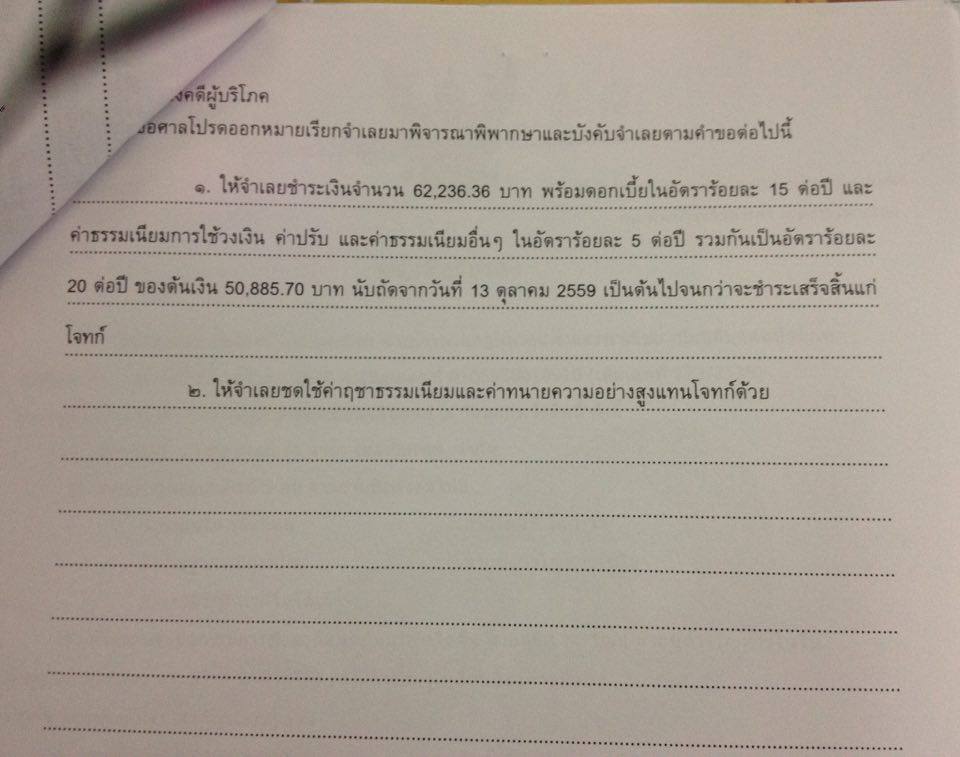 คดีผู้บริโภค
ขอศาลโปรดออกหมายเรียกจำเลยมาพิจารณาพิพากษาและบังคับจำเลยตามคำขอต่อไปนี้
๑. ให้จำเลยชำระเงินจำนวน 62,236.36 บาท พร้อมดอกเบี้ยในอัตราร้อยละ 15 ต่อปี และ
ค่าธรรมเนียมการใช้วงเงิน ค่าปรับ และค่าธรรมเนียมอื่นๆ ในอัตราร้อยละ 5 ต่อปี รวมกันเป็นอัตราร้อยละ
20 ต่อปี ของต้นเงิน 50,885.70 บาท นับถัดจากวันที่ 13 ตุลาคม 2559 เป็นต้นไปจนกว่าจะชำระเสร็จสิ้นแก่
โจทก์
๒. ให้จำเลยชดใช้ค่าฤชาธรรมเนียมและค่าทนายความอย่างสูงแทนโจทก์ด้วย